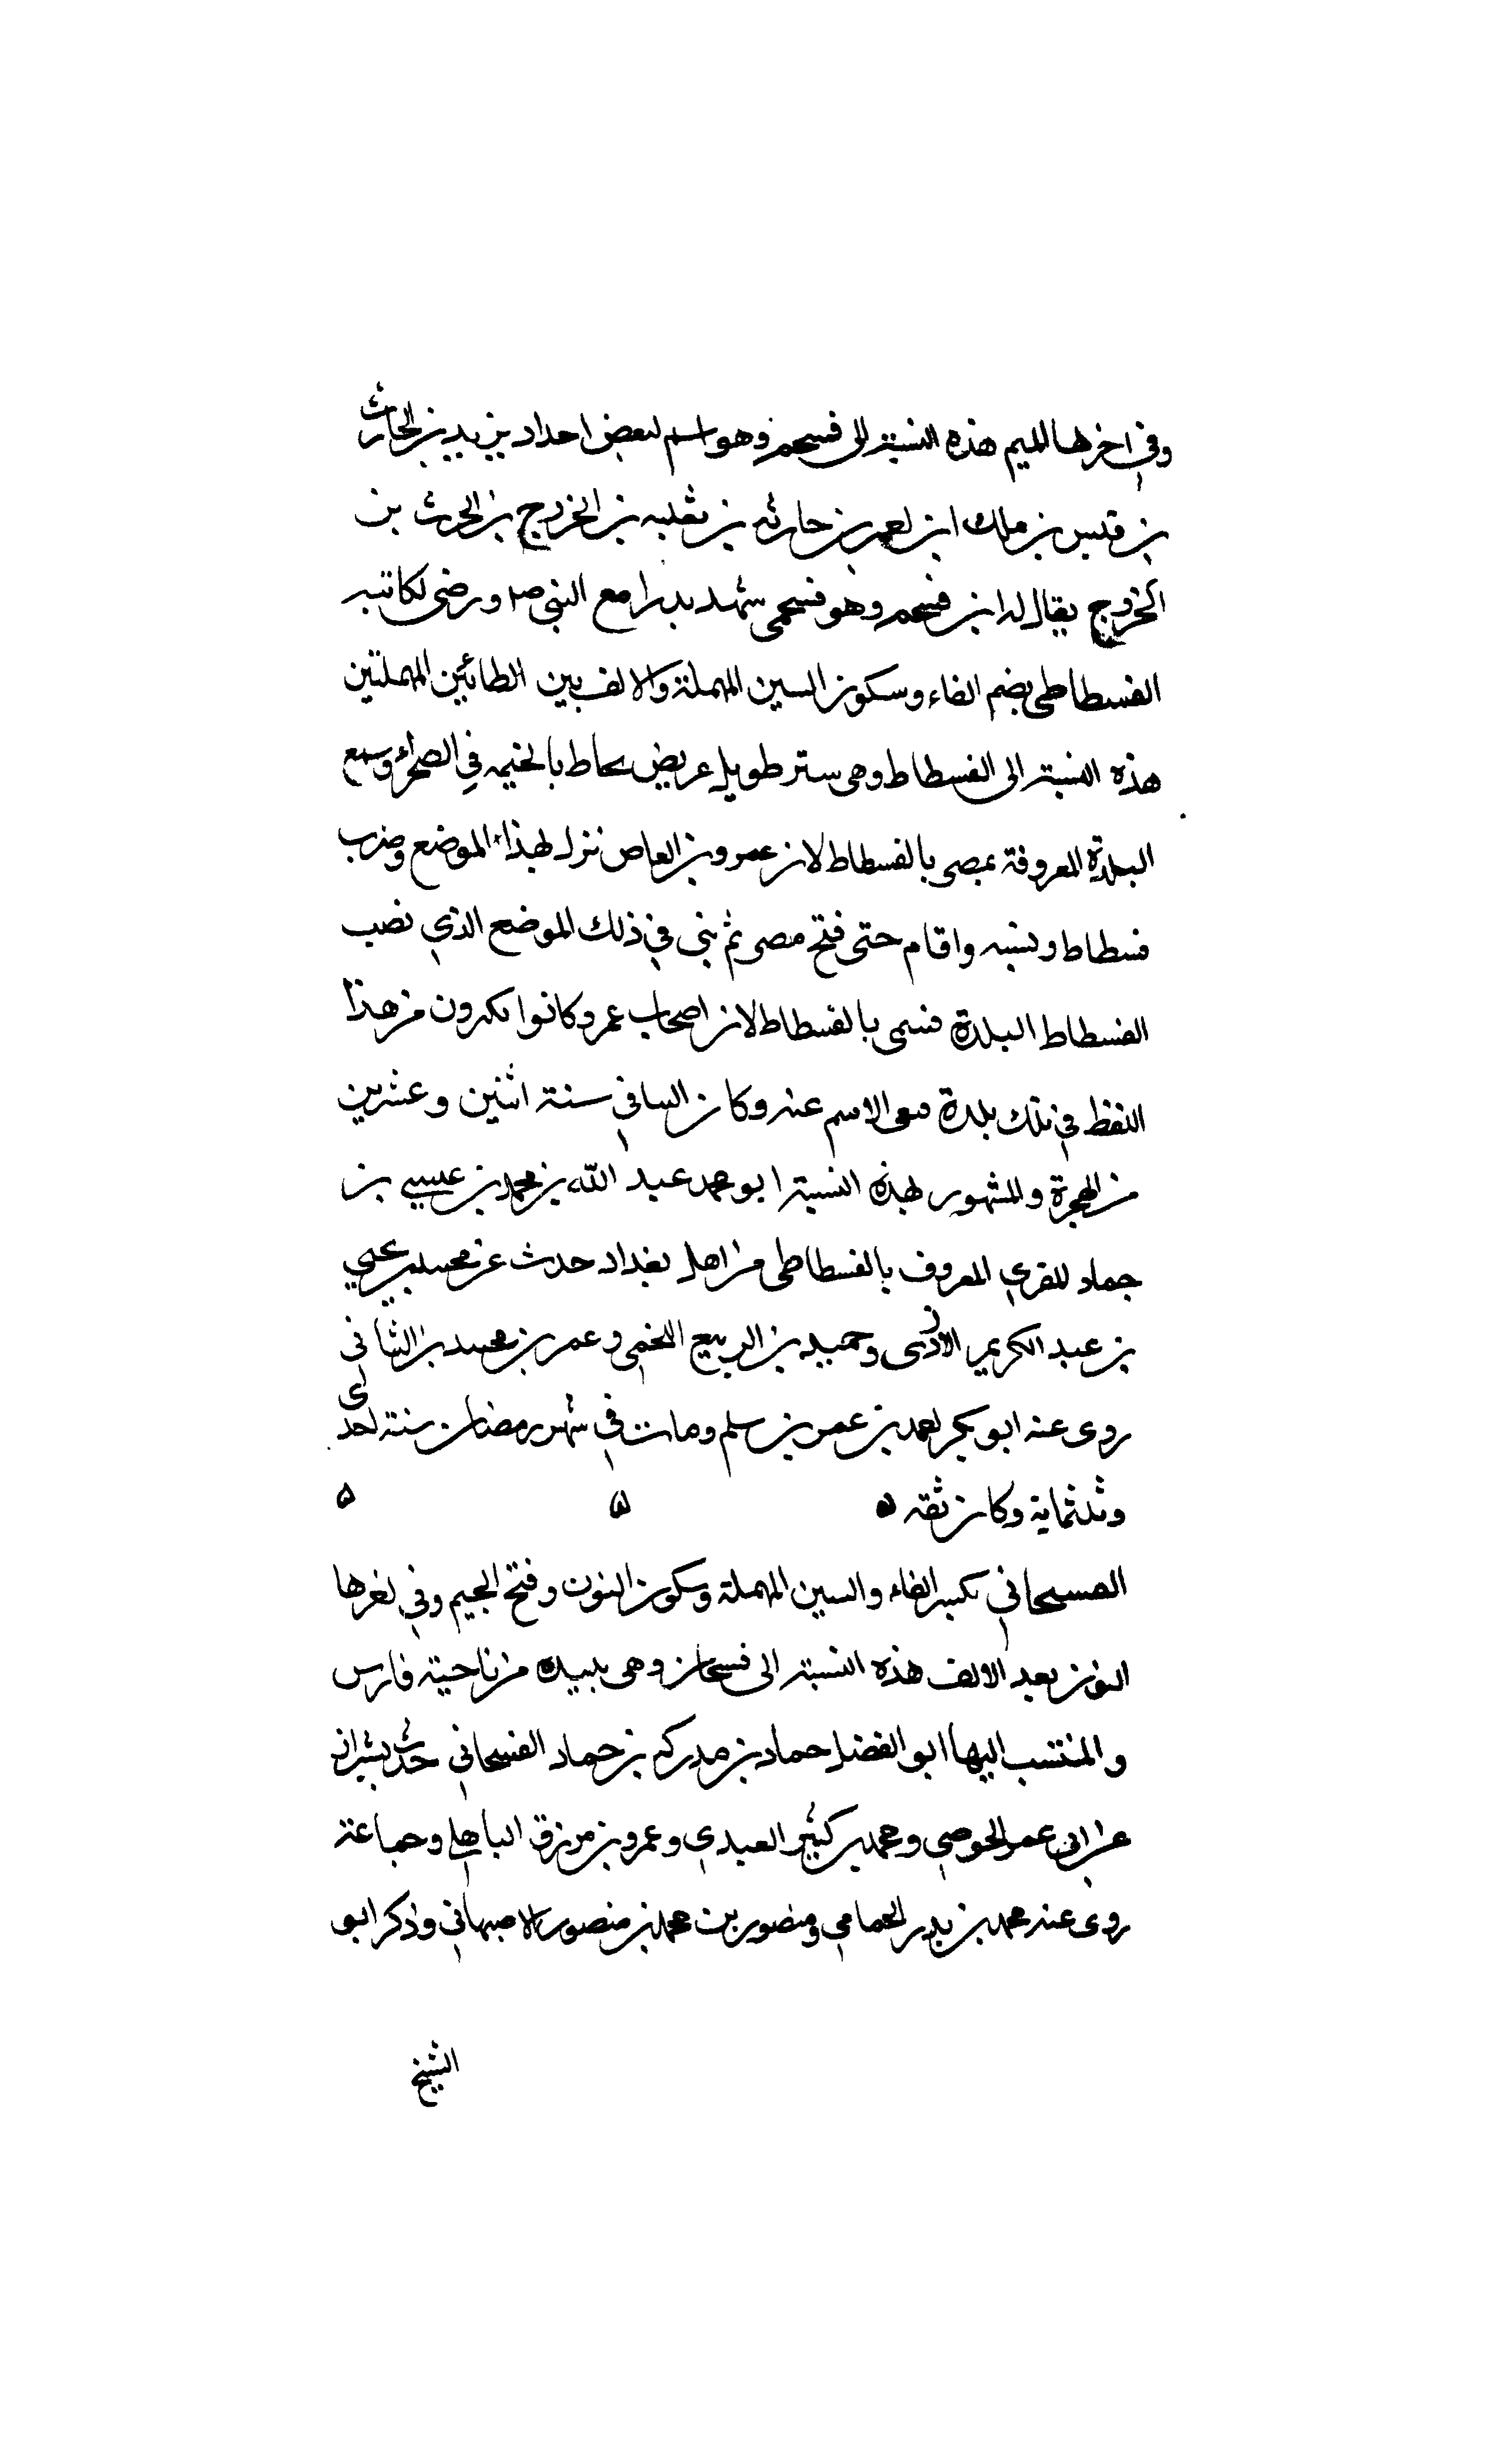 وفي اخرها الميم هذه النسبة الى فسحم وهو اسم لبعض اجداد يزيد بن الحارث
بن قيس بن ملك ابن احمر بن حارثه بن ثعلبه بن الخزرج بن الحرث بن
الخزرج يقال له ابن فسحم وهو فسحمي شهد بدرا مع النبي صم ورضي لكاتبه
الفسطاطي بضم الفاء وسكون السين المهملة والالف بين الطائين المهملتين
هذه النسبة الى الفسطاط وهي ستر طويل عريض يحاط بالخيمه في الصحراء وسمع
البلدة المعروفة بمصر بالفسطاط لان عمرو بن العاص نزل بهذا الموضع وضرب
فسطاط وبيته واقام حتى فتح مصر ثم بنى في ذلك الموضع الذي نصب
الفسطاط البلدة فسمى بالفسطاط لان اصحاب عمرو كانوا يكدرون من هذا
اللفظ في تلك بلدة فبقى الاسم عنه وكان البناء في سنة اثنين وعشرين
من الهجرة والمشهور بهذه النسبة ابو محمد عبد الله بن محمد بن عيسى بن
حماد المقري المعروف بالفسطاطي من اهل بغداد حدث عن محمد بن يحيي
بن عبد الكريم الازدى وحميد بن الربيع اللخمي وعمر بن محمد بن الثاني
روى عنه ابو بكر احمد بن عمر بن سلم ومات في شهر رمضان سنة احدى
وثلثماية وكان ثقه ه ه ه
الفسنجاني بكسر الفاء والسين المهملة وسكون النون وفتح الجيم وفي اخرها
النون بعد الالف هذه النسبة الى فسنجان وهي بليدة من ناحية فارس
والمنتسب اليها ابو الفضل حماد بن مدرك بن حماد الفسنجاني حدث بشيراز
عن ابي عمر الحوضي ومحمد بن كثير العبدي وعمرو بن مرزق الباهلي وجماعة
روى عنه محمد بن بدر الحمامي ومنصور بن محمد بن منصور الاصبهاني وذكر ابو
الشيخ